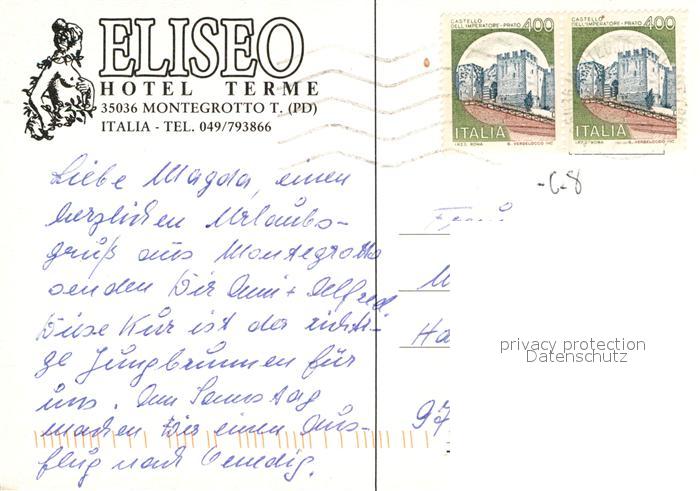 ELISEO
HOTEL TERME
35036 MONTEGROTTO T. (PD)
ITALIA - TEL. 049/793866
CASTELLO DELL'IMPERATORE - PRATO 400
ITALIA
I.P.Z.S. ROMA
CASTELLO DELL'IMPERATORE - PRATO 400
ITALIA
I.P.Z.S. ROMA
-C-8
Liebe Magda, einen
herzlichen Urlaubs-
gruß aus Montegrotto
senden Dir Anni + Alfred
Diese Kur ist der richti-
ge Jungbrunnen für
uns. Am Samstag
machen wir einen Aus-
flug nach Venedig.
Frau
M
Ha
97
privacy protection
Datenschutz